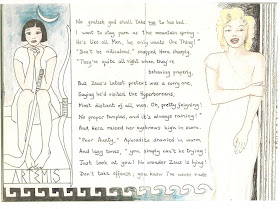 No godlet god shall take me to his bed.
I want to stay pure as the mountain spring.
He's like all Men, he only wants One Thing!"
"Don't be ridiculous," snapped Hera sharply,
"They're quite all right when they're
behaving properly,
But Zeus's latest pretext was a corny one,
Saying he'd visited the Hyperboreans,
Most distant of all men. Oh, pretty feigning!
No proper temples, and it's always raining!"
And Hera raised her eyebrows high in scorn.
"Poor Aunty," Aphrodite drawled in warm
And lazy tones, "you simply can't be trying!
Just look at you! No wonder Zeus is lying!
Don't take offence; you know I've never made
ARTEMIS